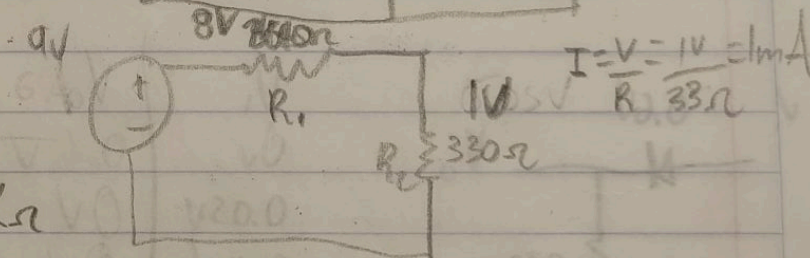 9V
8V
R₁
1V
R₂ 330Ω
I = V/R = 1V/33Ω = 1mA
Ω